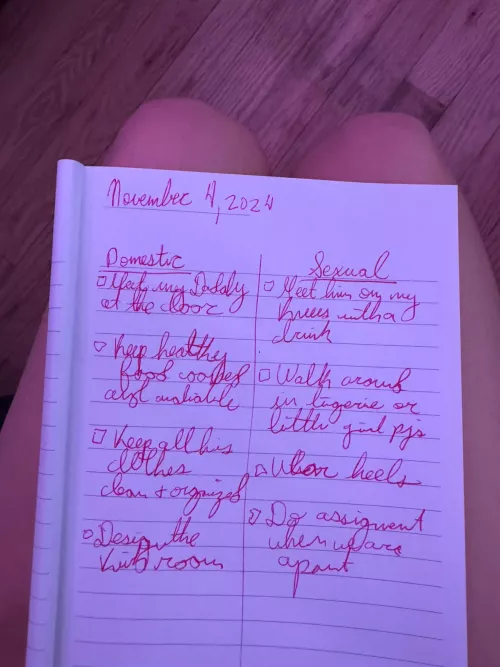 November 4, 2024
Domestic
Meet my Daddy
at the door
Keep healthy
food cooked
and available
Keep all his
clothes
clean + organized
Design the
room
Sexual
Meet him on my
knees with a
drink
Walk around
in lingerie or
little girl pjs
Wear heels
Do assigment
when we are
apart